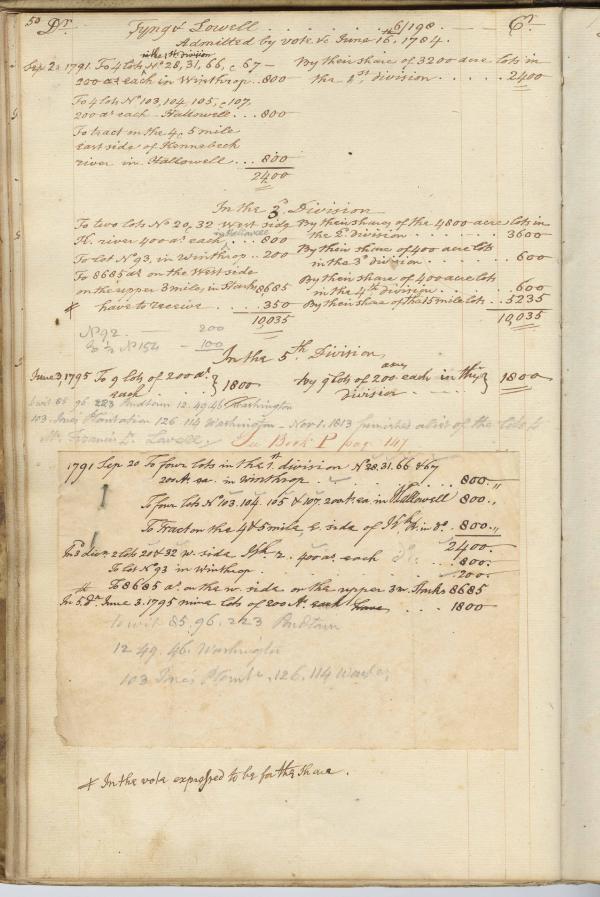 50 Dr. Tyng & Lowell . . . . . . . . 6/198 . . Cr.
Admitted by vote &c June 16th, 1784.
in the 1st Division
Sep 20 1791. To 4 lots No 28, 31, 66, & 67 — By their share of 3200 acre lots in
200 as each in Winthrop .. 800 the 1st division . . . . . 2400
To 4 lots No 103, 104, 105, & 107.
200 as each Hallowell . . 800
To tract on the 4 & 5 mile
East side of Kennebeck
river in Hallowell . . . 800
2400
In the 3d Division
To two lots No 20, 32 West side By their shares of the 4800 acre lots in
in Hallowell
K. river 400 as each . . 800 the 2d division . . . . . 3600
To lot No 93, in Winthrop .. 200 By their share of 400 acre lots
in the 3d division . . . . 600
To 8685 as on the West side By their share of 400 acre lots
on the upper 3 miles, in Starks 8685 in the 4th division . . . . 600
# have to receive . . . 350 By their share of the 15 mile lots . . 5235
10,035 10,035
No 92 — 200
& ½ No 154 — 100
In the 5th Division
June 3, 1795 To 9 lots of 200 as each } 1800 by 9 lots of 200 acres each in this division } 1800
to wit 85 96 223 12 49 46 Washington
103 Jones Plantation 126 114 Washington — Nov 1. 1813 furnished a list of the lots to
Mr Francis C. Lowell.
See Book P page 147
1791 Sep 20 To four lots in the 1st division No 28. 31. 66 & 67
200 A. ea. in Winthrop . . . . . 800 . ,,
To four lots No 103. 104. 105 & 107. 200 A. ea in Hallowell 800 . ,,
To Tract on the 4 & 5 mile, E. side of in do. . . 800 . ,,
2400 .
In 3 divn 2 lots 20 & 32 w. side r. 400 as. each do . . . 800 .
To lot No 93 in Winthrop . . . . . . . 200 .
# To 8685 as. on the w. side on the upper 3 m. Starks 8685
In 5. Dn June 3. 1795 nine lots of 200 A. each have . . . 1800
to wit 85. 96. 223
12 49. 46. Washington
103 Jones 126. 114
# In the vote expressed to be for the Share.